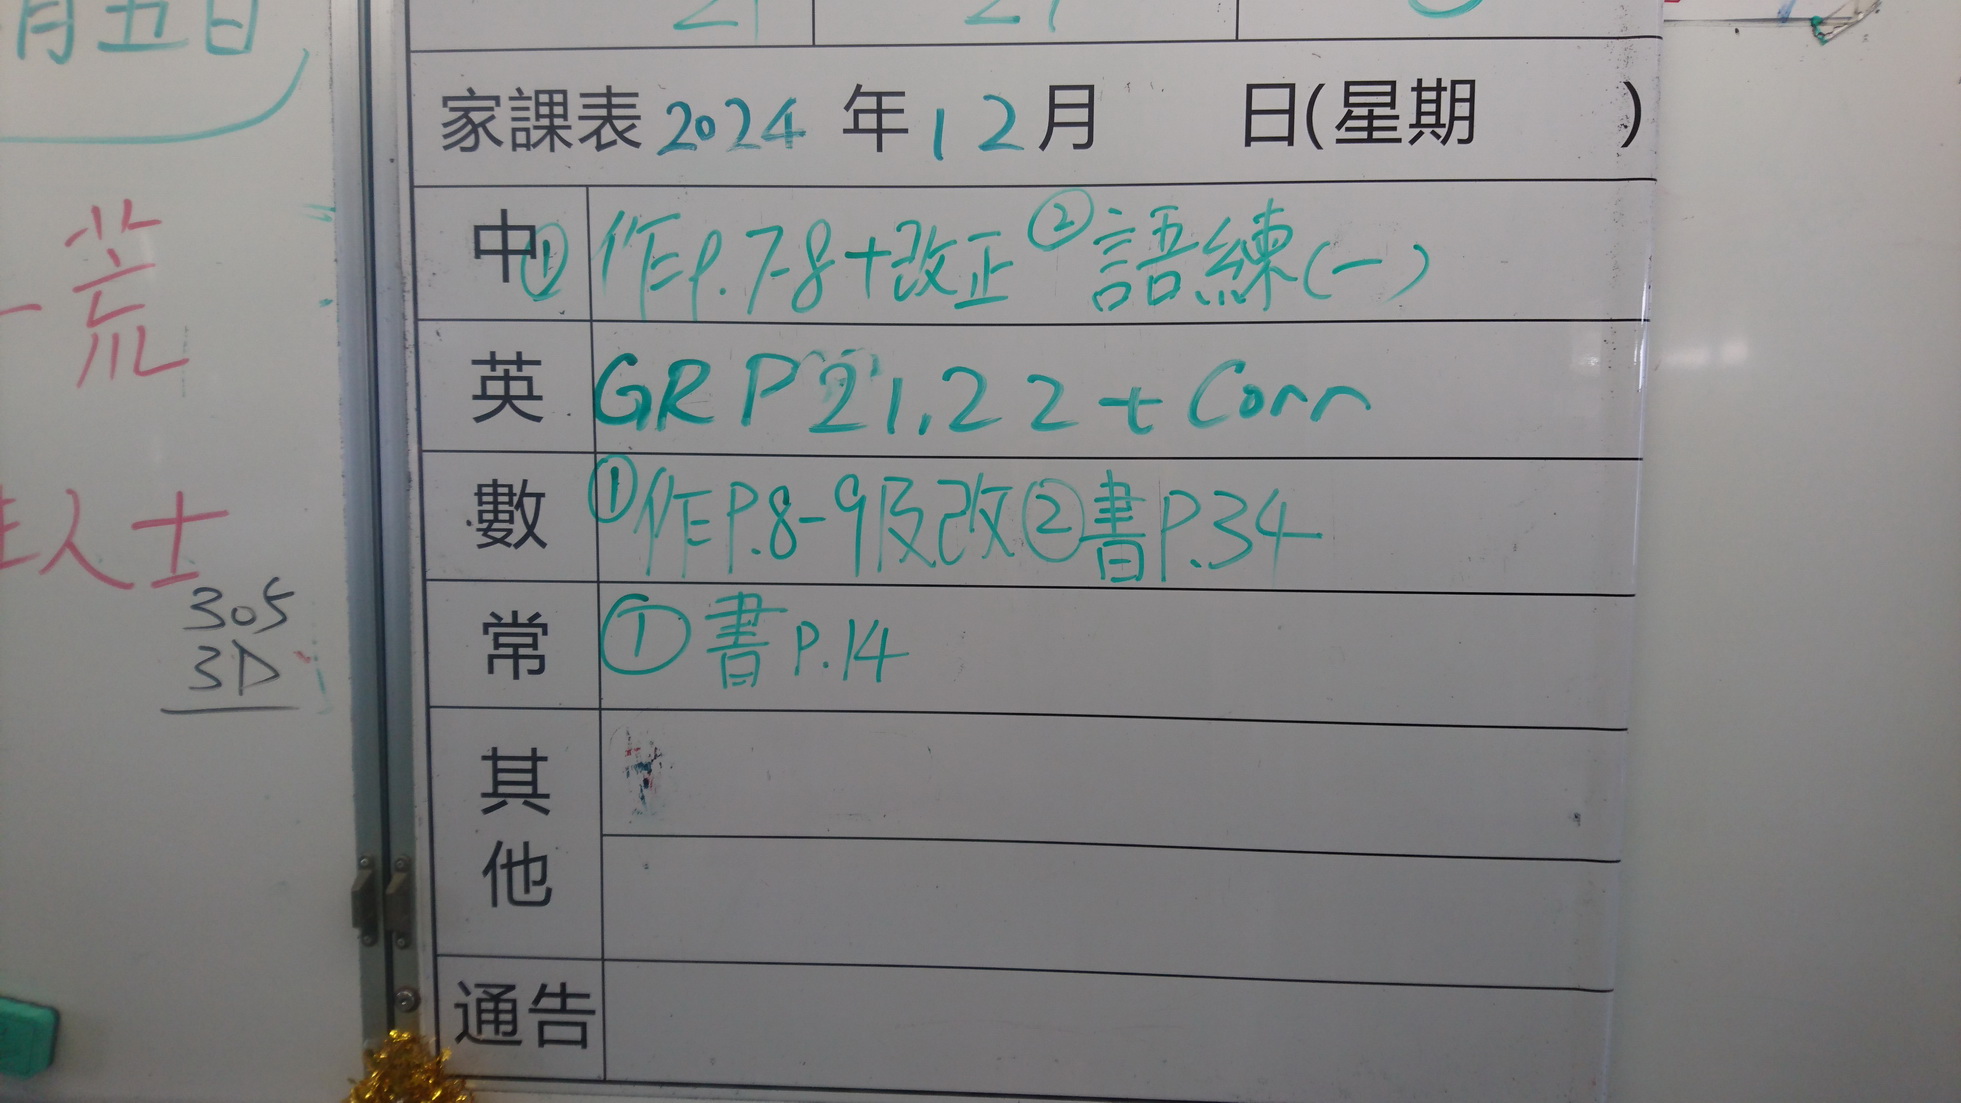 月五日
荒
人士
305
3D
家課表 2024 年 12 月 日(星期 )
中 ① 作P.7-8+改正 ② 語練(一)
英 GR P21,22 + Corr
數 ① 作P.8-9及改 ② 書P.34
常 ① 書P.14
其他
通告